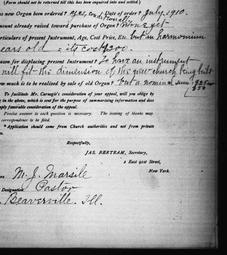 (Form should not be returned till this has been enquired into and settled.)
new Organ been ordered? Yes, Date of order? July, 1910.
amount already raised toward purchase of Organ? None yet
Particulars of present Instrument, Age, Cost Price, Etc. but an harmonium
years old
reason for displacing present Instrument? To have an instrument
will fit the dimension of the new church being built
much is to be realized by sale of old Organ? Put a nominal sum
To facilitate Mr. Carnegie's consideration of your appeal, will you oblige by
in the above, which is used for the purpose of summarizing information and does
imply favorable consideration of the appeal.
Precise answer to each question is necessary. The issuing of blanks may
correspondence to be filed.
Application should come from Church authorities and not from private
Respectfully,
JAS. BERTRAM, Secretary,
2 East 91st Street,
New York.
M. J. Marsile
Designation Pastor
Beaverville, Ill.